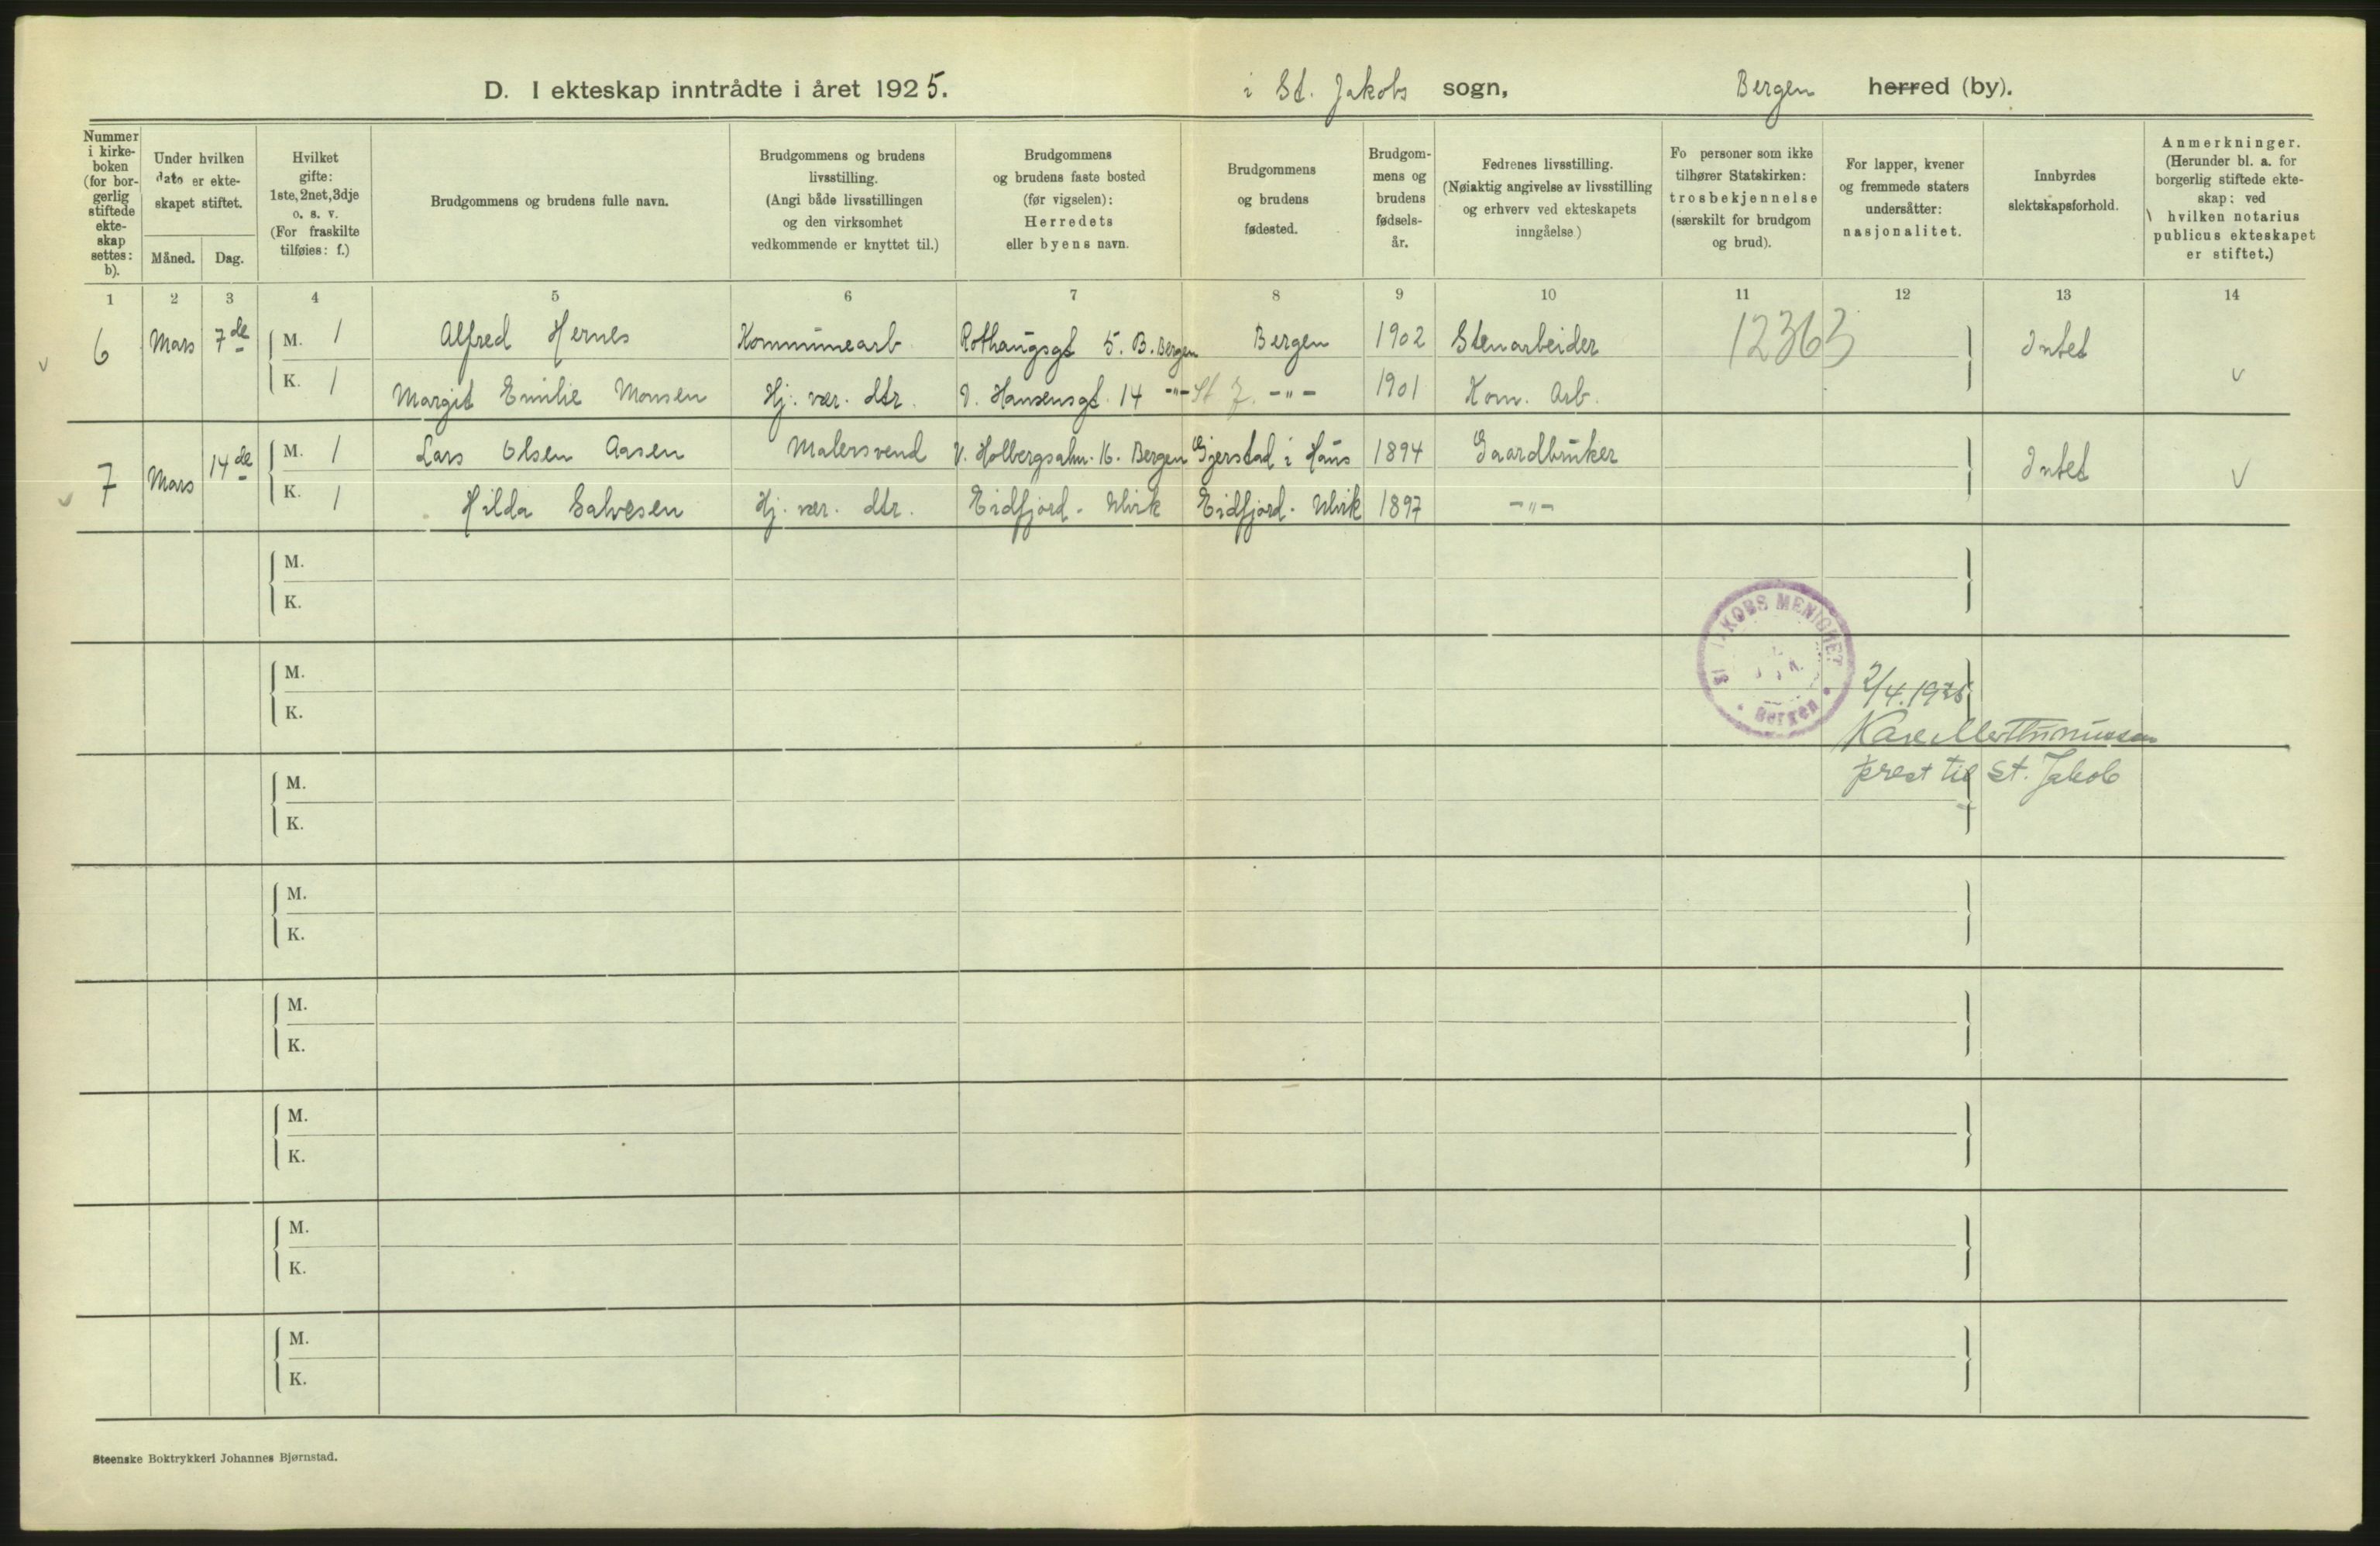 D. I ekteskap inntrådte i året 1925. i St. Jakobs sogn, Bergen herred (by).
Nummer i kirke-boken (for bor-gerlig stiftede ekte-skap settes: b).
Under hvilken dato er ekte-skapet stiftet.
Måned. Dag.
Hvilket gifte: 1ste, 2net, 3dje o. s. v. (For fraskilte tilføies: f.)
Brudgommens og brudens fulle navn.
Brudgommens og brudens livsstilling. (Angi både livsstillingen og den virksomhet vedkommende er knyttet til.)
Brudgommens og brudens faste bosted (før vigselen): Herredets eller byens navn.
Brudgommens og brudens fødested.
Brudgom-mens og brudens fødsels-år.
Fedrenes livsstilling. (Nøiaktig angivelse av livsstilling og erhverv ved ekteskapets inngåelse)
Fo personer som ikke tilhører Statskirken: trosbekjennelse (særskilt for brudgom og brud).
For lapper, kvener og fremmede staters undersåtter: nasjonalitet.
Innbyrdes slektskapsforhold.
Anmerkninger. (Herunder bl. a. for borgerlig stiftede ekte-skap: ved hvilken notarius publicus ekteskapet er stiftet.)
1 2 3 4 5 6 7 8 9 10 11 12 13 14
6 Mars 7de M. 1 Alfred Hernes Kommunearb. Rothaugsgt 5. B. Bergen Bergen 1902 Stenarbeider 12363 Intet
K. 1 Margit Emilie Monsen Hj. vær. dtr. V. Hansensgt. 14 -"- St J. -"- 1901 Kom. Arb. v
7 Mars 14de M. 1 Lars Olsen Aasen Malersvend V. Holbergsalm. 16. Bergen Gjerstad i Haus 1894 Gaardbruker Intet v
K. 1 Hilda Salvesen Hj. vær. dtr. Eidfjord - Ulvik Eidfjord - Ulvik 1897 -"-
M.
K.
M.
K.
ST JAKOBS MENIGHET
Bergen
2/4.1925
prest til St. Jakob
M.
K.
M.
K.
M.
K.
M.
K.
M.
K.
M.
K.
Steenske Boktrykkeri Johannes Bjørnstad.